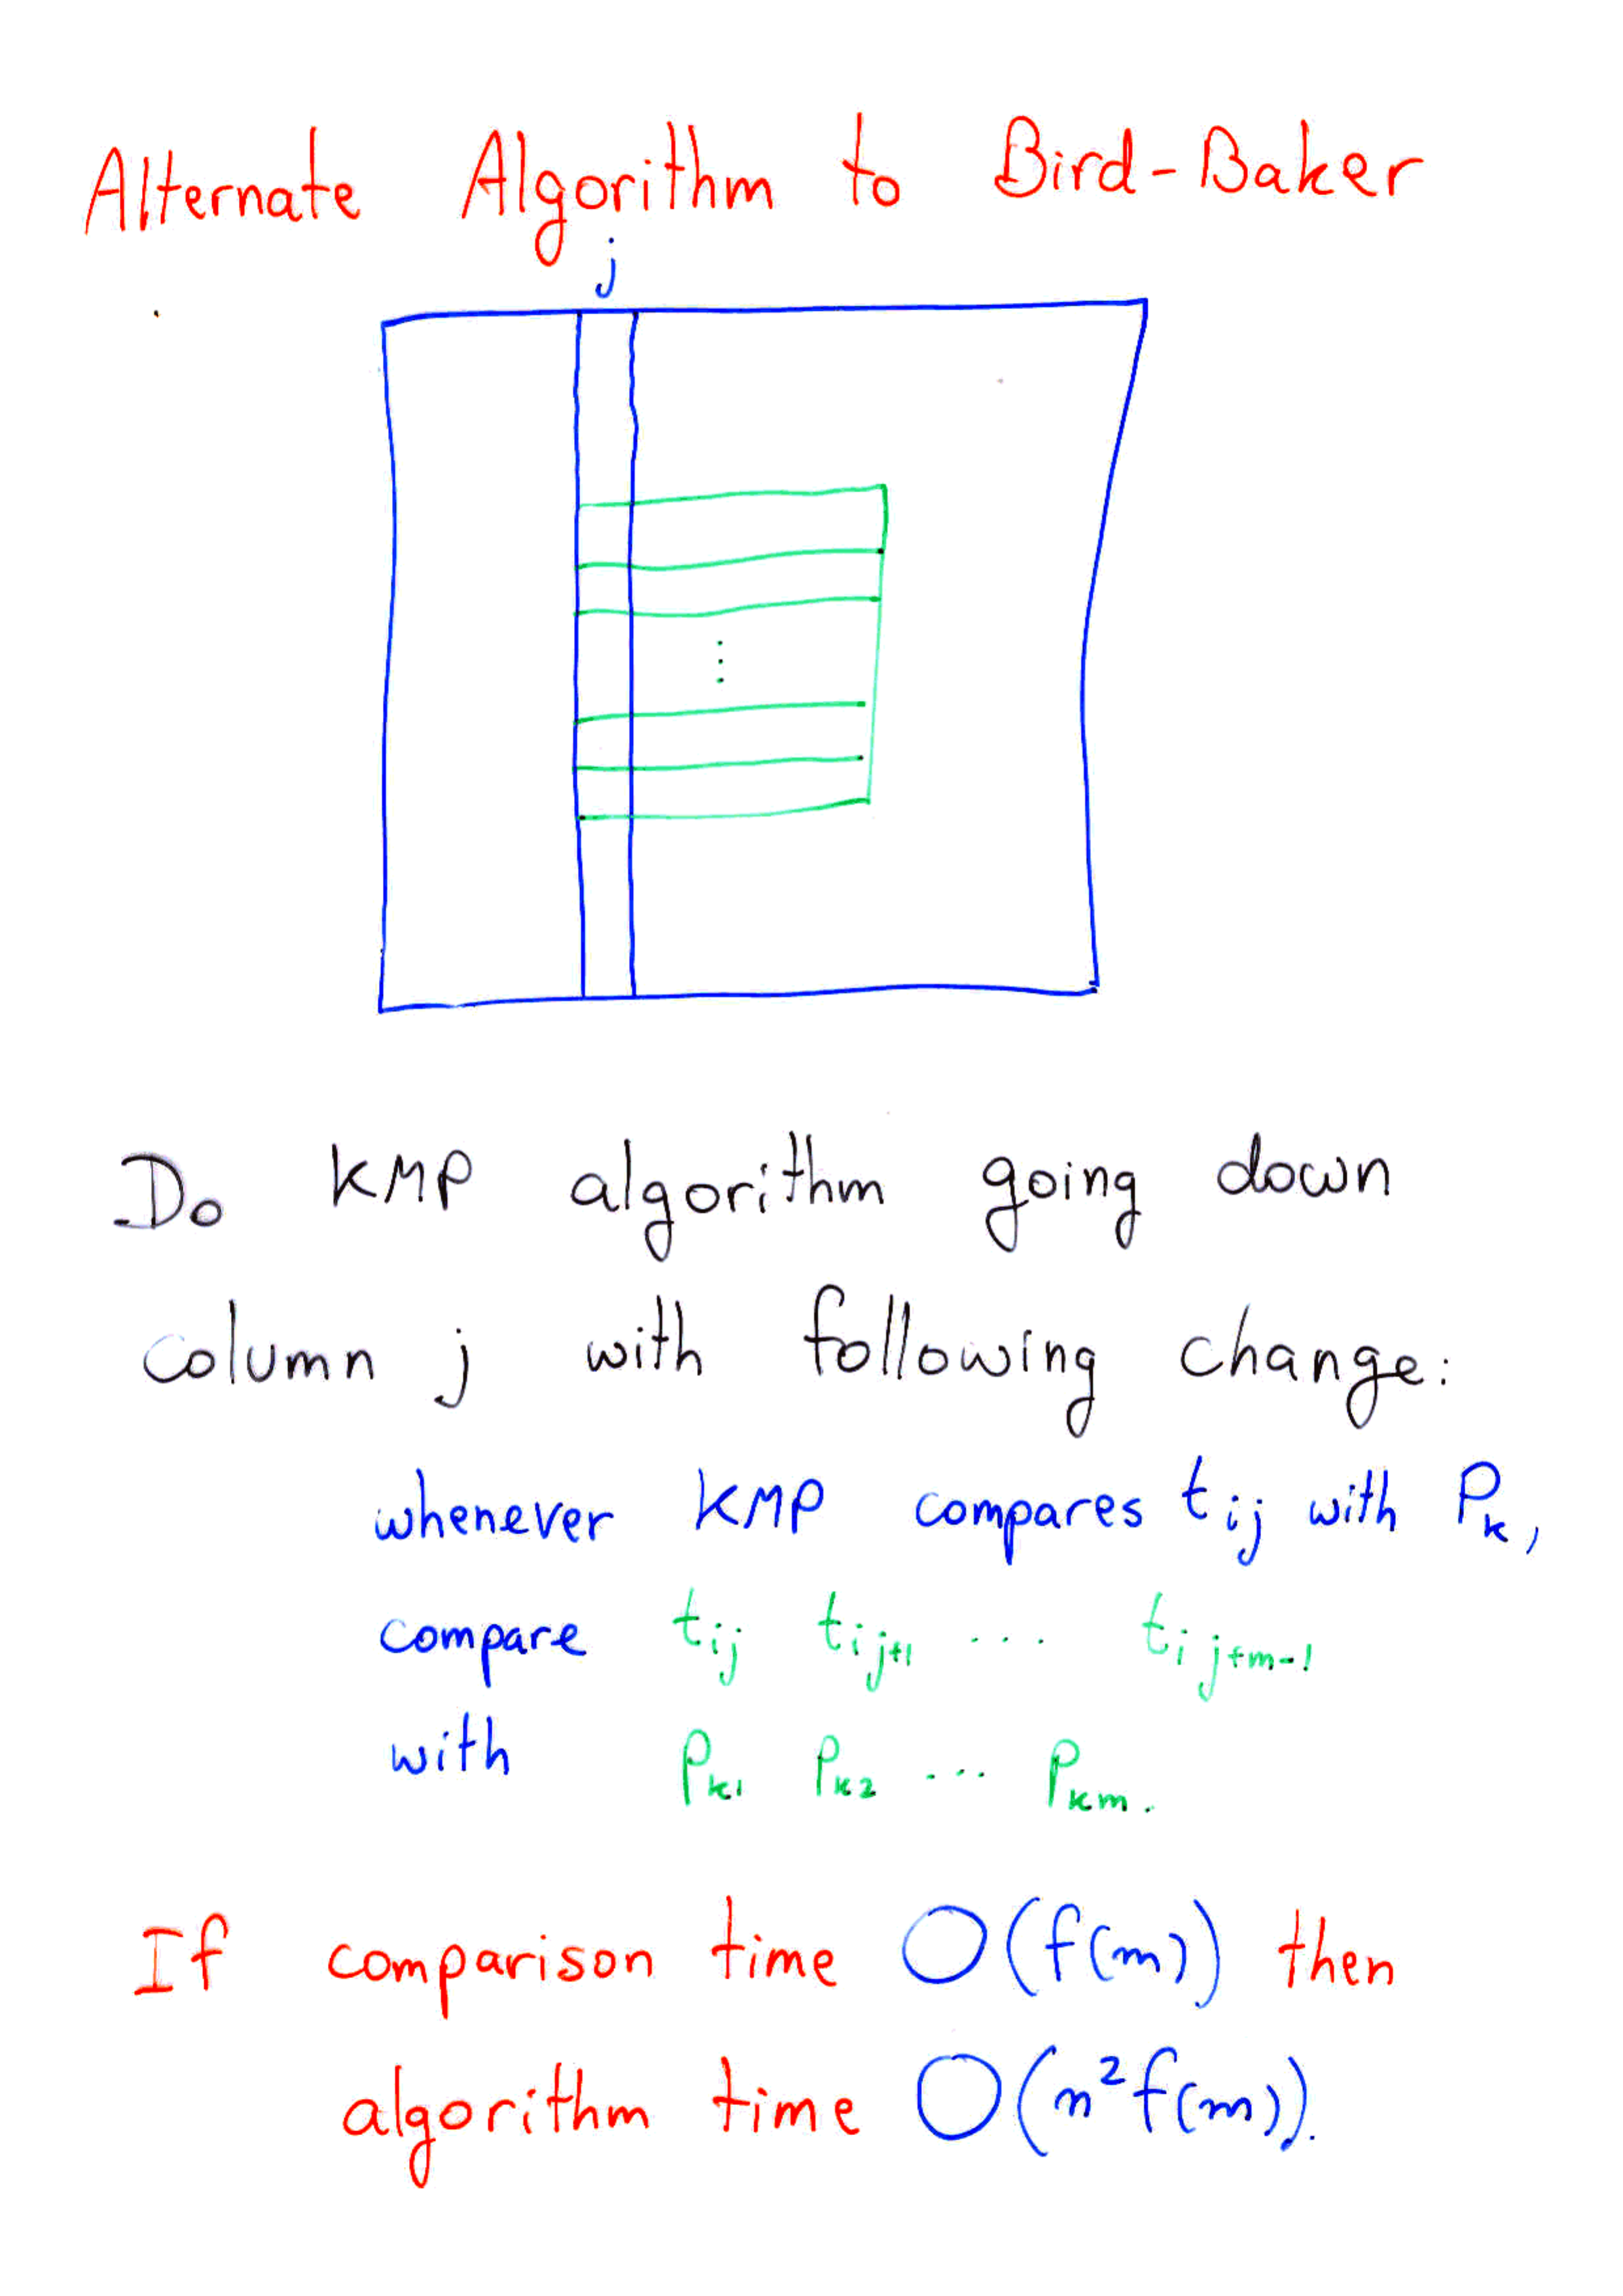 Alternate Algorithm to Bird-Baker
j
⋮
Do KMP algorithm going down
column j with following change:
whenever KMP compares t_ij with P_k,
compare t_ij t_ij+1 ... t_ij+m-1
with P_k1 P_k2 ... P_km.
If comparison time O(f(m)) then
algorithm time O(n²f(m)).